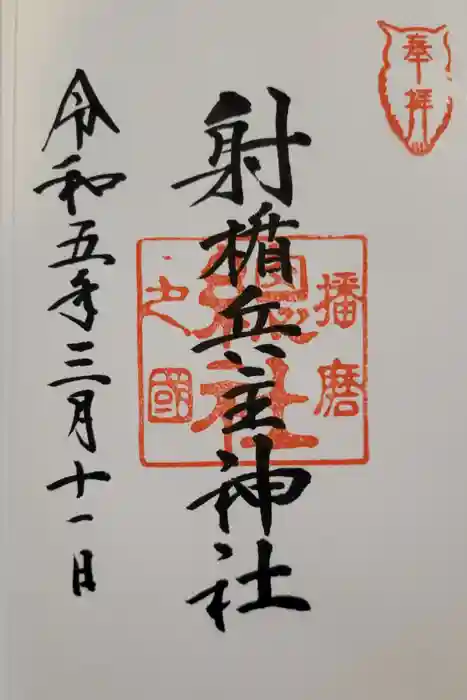 奉拝
播磨
之國
総社
射楯兵主神社
令和五年三月十一日